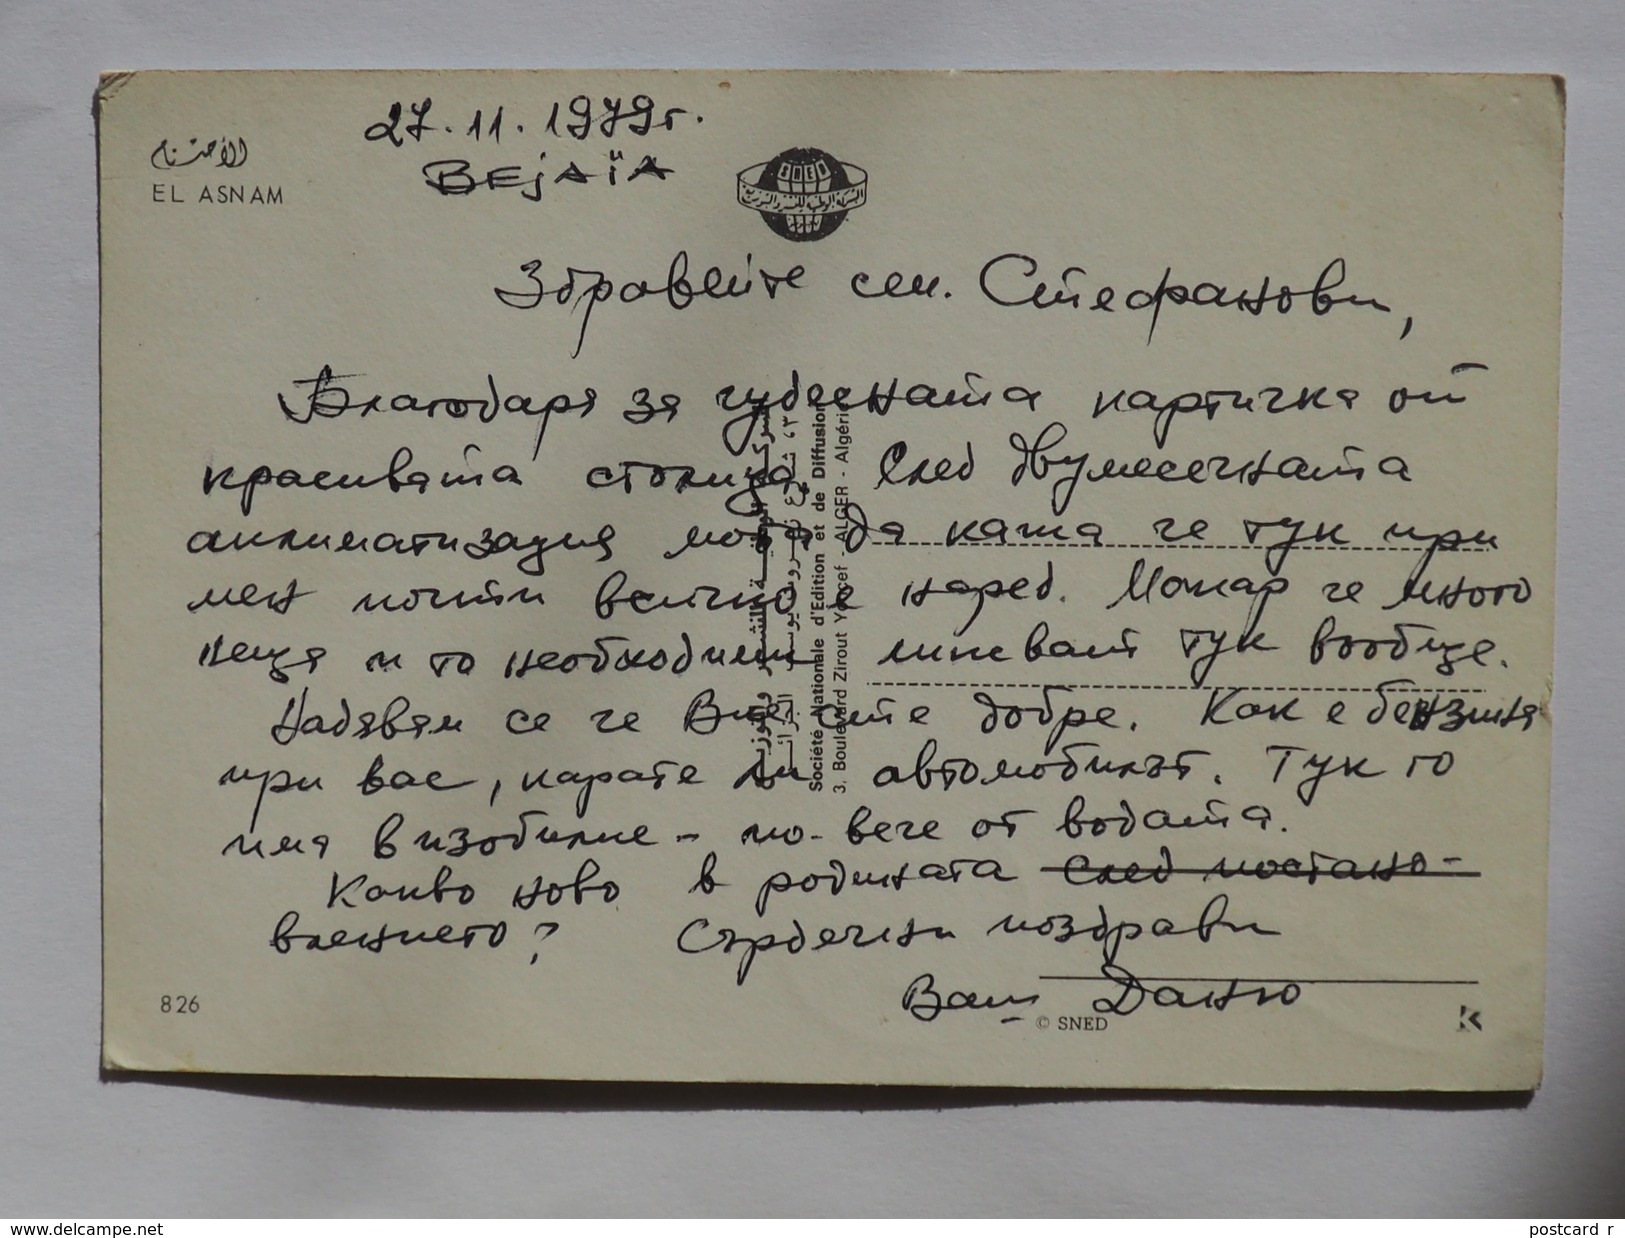 27.11.1979г.
BEJAÏA
الأصنام
EL ASNAM
SNED
Здравейте сем. Стефанови,
Благодаря за чудесната картичка от
красивата столица. След двумесечната
аклиматизация мога да кажа че тук при
мен почти всичко е наред. Макар че много
неща и то необходими липсват тук въобще.
Надявам се че Вие сте добре. Как е бензиня
при вас, карате ли автомобилът. Тук го
има в изобилие - по-вече от водата.
Какво ново в родината след постано-
влението? Сърдечни поздрави
Ваш Данчо
Société Nationale d'Edition et de Diffusion
3, Boulevard Zirout Youcef - ALGER - Algérie
826
© SNED
www.delcampe.net
postcard_r